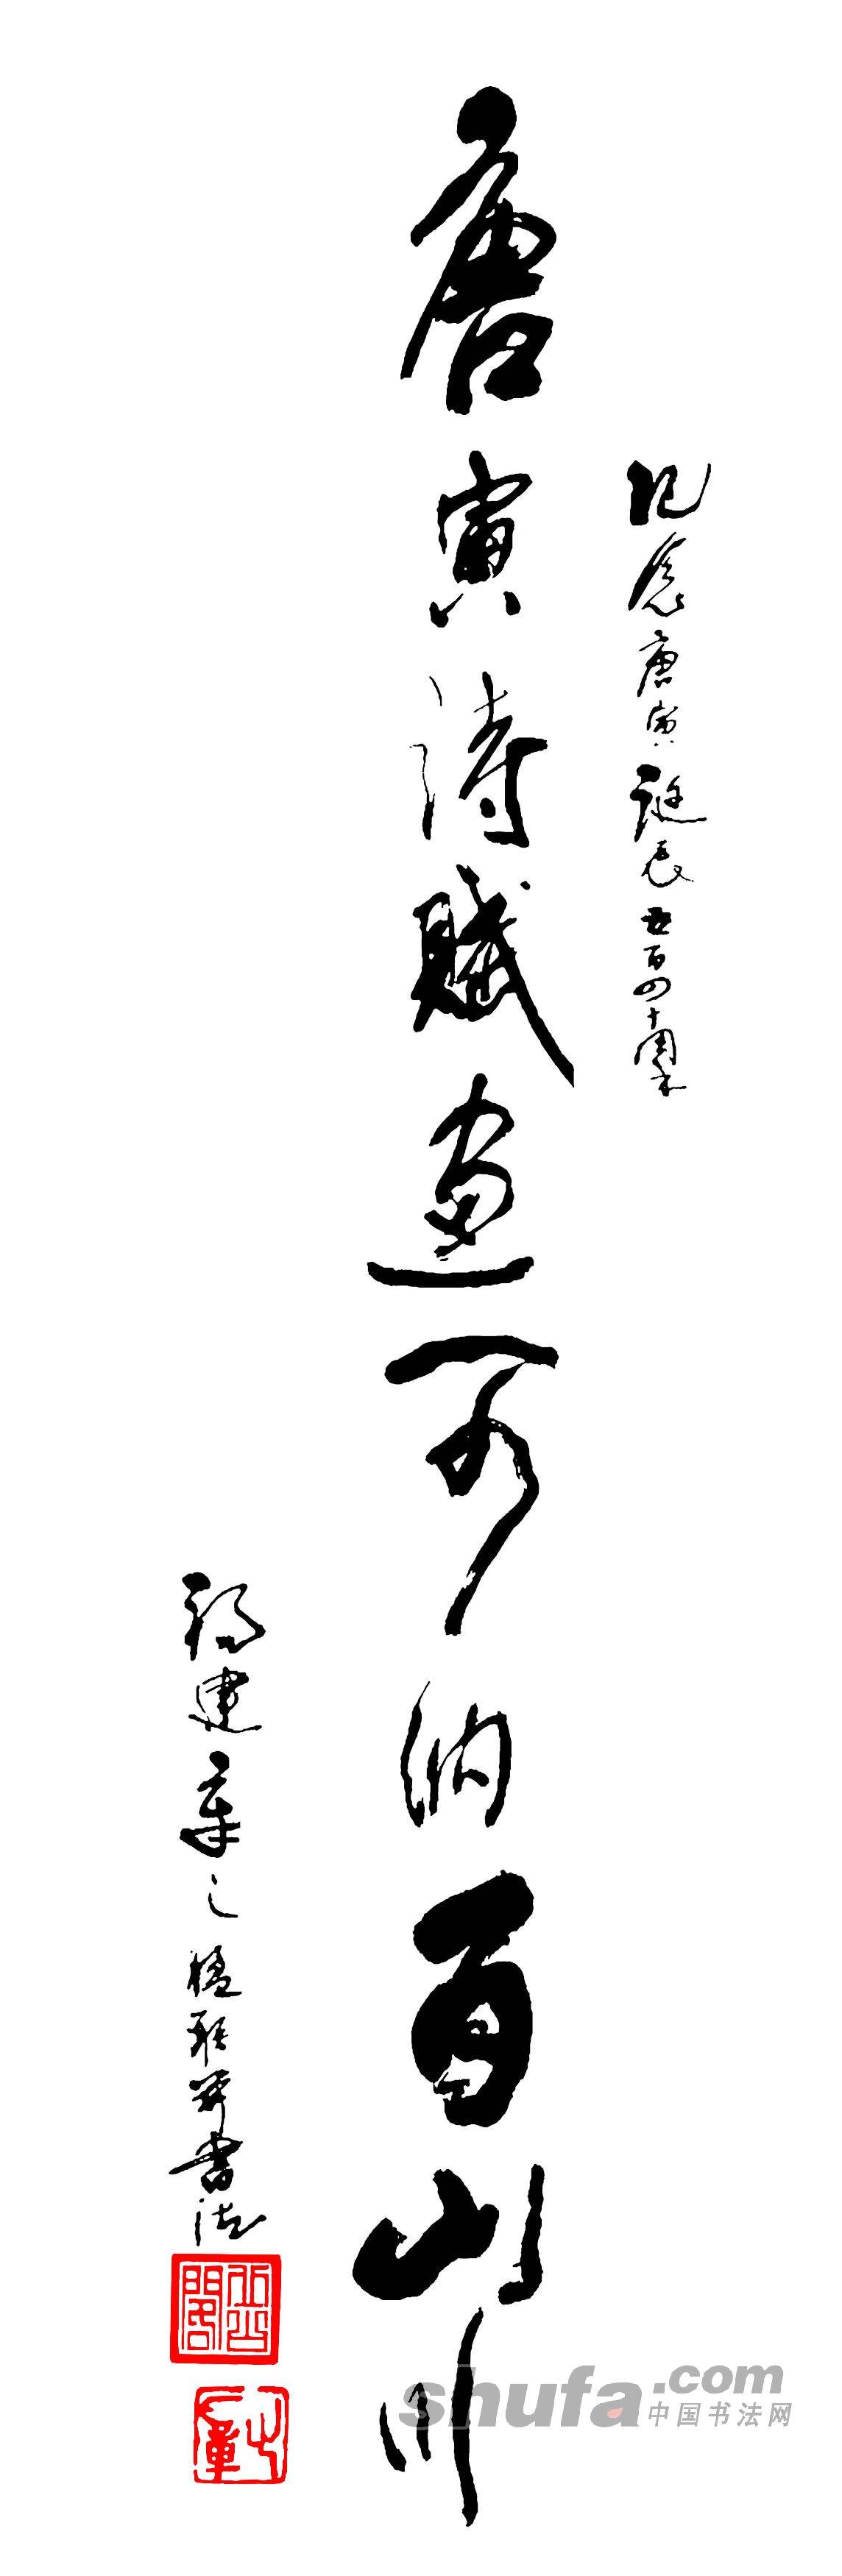 记念唐寅诞辰五百四十周年
唐寅诗赋画可纳百山川
福建章之
书法
shufa.com
中国书法网